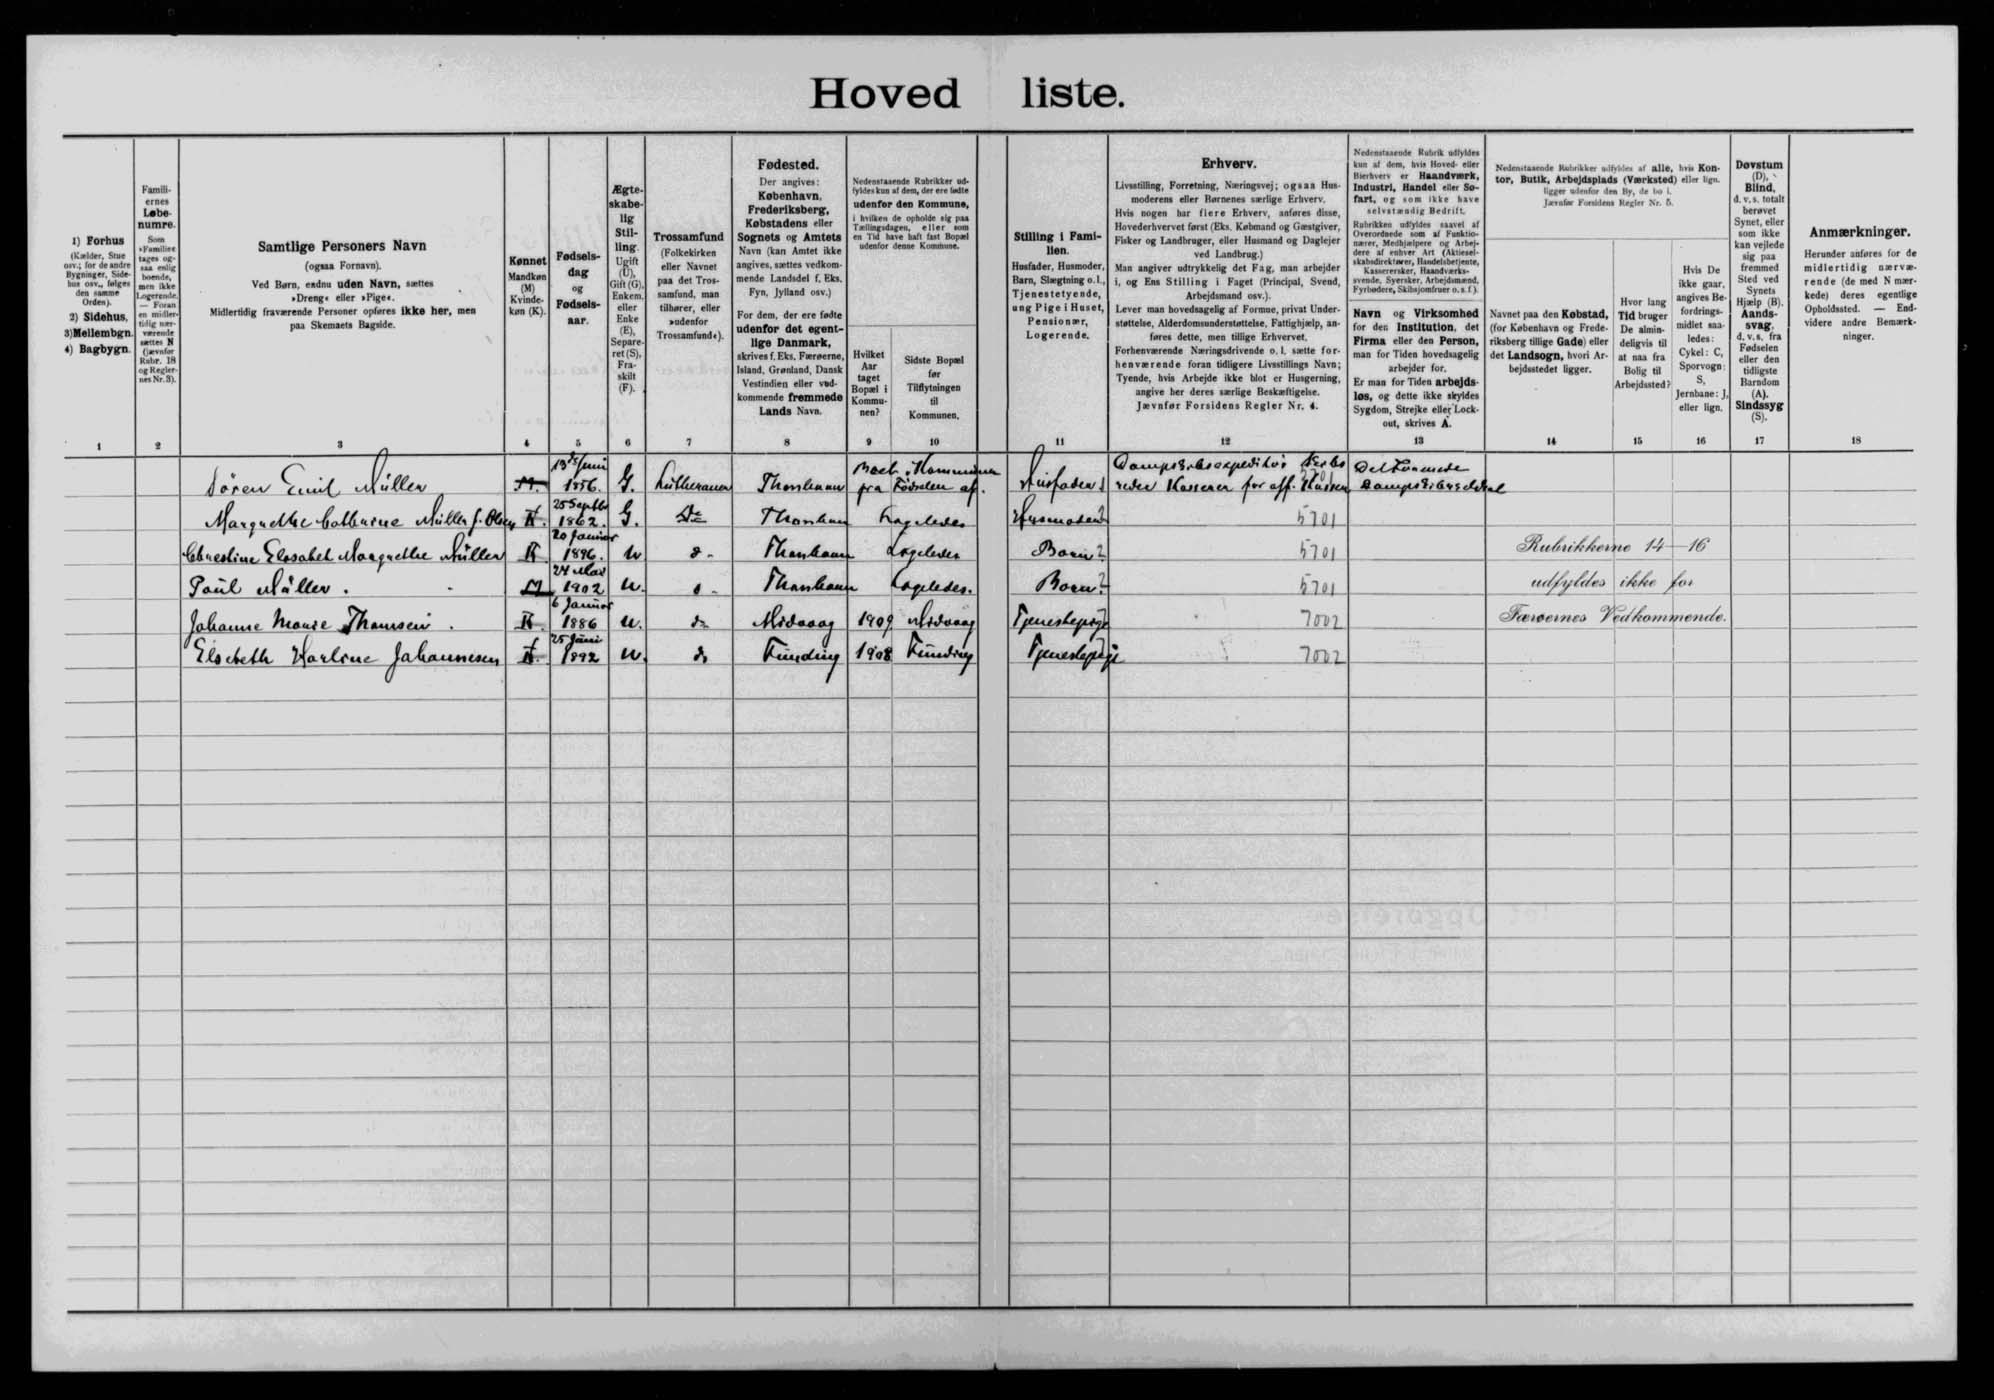 Hoved liste.
1) Forhus
(Kælder, Stue
osv.; for de andre
Bygninger, Side-
hus osv., følges
den samme
Orden).
2) Sidehus,
3) Mellembgn.
4) Bagbygn.
1
Famili-
ernes
Løbe-
numre.
Som
»Familie«
tages og-
saa enlig
boende,
men ikke
Logerende.
— Foran
en midler-
tidig nær-
værende
sættes N
(jævnfør
Rubr. 18
og Regler-
nes Nr. 3).
2
Samtlige Personers Navn
(ogsaa Fornavn).
Ved Børn, endnu uden Navn, sættes
»Dreng« eller »Pige«.
Midlertidig fraværende Personer opføres ikke her, men
paa Skemaets Bagside.
3
Kønnet
Mandkøn
(M)
Kvinde-
køn (K).
4
Fødsels-
dag
og
Fødsels-
aar.
5
Ægte-
skabe-
lig
Stil-
ling.
Ugift
(U),
Gift (G),
Enkem.
eller
Enke
(E),
Separe-
ret (S),
Fra-
skilt
(F).
6
Trossamfund
(Folkekirken
eller Navnet
paa det Tros-
samfund, man
tilhører, eller
»udenfor
Trossamfund«).
7
Fødested.
Der angives:
København,
Frederiksberg,
Købstadens eller
Sognets og Amtets
Navn (kan Amtet ikke
angives, sættes vedkom-
mende Landsdel f. Eks.
Fyn, Jylland osv.)
For dem, der ere fødte
udenfor det egent-
lige Danmark,
skrives f. Eks. Færøerne,
Island, Grønland, Dansk
Vestindien eller ved-
kommende fremmede
Lands Navn.
8
Nedenstaaende Rubrikker ud-
fyldes kun af dem, der ere fødte
udenfor den Kommune,
i hvilken de opholde sig paa
Tællingsdagen, eller som
en Tid have haft fast Bopæl
udenfor denne Kommune.
Hvilket
Aar
taget
Bopæl i
Kommu-
nen?
9
Sidste Bopæl
før
Tilflytningen
til
Kommunen.
10
Stilling i Fami-
lien.
Husfader, Husmoder,
Barn, Slægtning o. l.,
Tjenestetyende,
ung Pige i Huset,
Pensionær,
Logerende.
11
Erhverv.
Livsstilling, Forretning, Næringsvej; ogsaa Hus-
moderens eller Børnenes særlige Erhverv.
Hvis nogen har flere Erhverv, anføres disse,
Hovederhvervet først (Eks. Købmand og Gæstgiver,
Fisker og Landbruger, eller Husmand og Daglejer
ved Landbrug.)
Man angiver udtrykkelig det Fag, man arbejder
i, og Ens Stilling i Faget (Principal, Svend,
Arbejdsmand osv.).
Lever man hovedsagelig af Formue, privat Under-
støttelse, Alderdomsunderstøttelse, Fattighjælp, an-
føres dette, men tillige Erhvervet.
Forhenværende Næringsdrivende o. l. sætte for-
henværende foran tidligere Livsstillings Navn;
Tyende, hvis Arbejde ikke blot er Husgerning,
angive her deres særlige Beskæftigelse.
Jævnfør Forsidens Regler Nr. 4.
12
Nedenstaaende Rubrik udfyldes
kun af dem, hvis Hoved- eller
Bierhverv er Haandværk,
Industri, Handel eller Sø-
fart, og som ikke have
selvstændig Bedrift.
Rubrikken udfyldes saavel af
Overordnede som af Funktio-
nærer, Medhjælpere og Arbej-
dere af enhver Art (Aktiesel-
skabsdirektører, Handelsbetjente,
Kassererske, Haandværks-
svende, Syersker, Arbejdsmænd,
Fyrbødere, Skibsjomfruer o. s. f.).
Navn og Virksomhed
for den Institution, det
Firma eller den Person,
man for Tiden hovedsagelig
arbejder for.
Er man for Tiden arbejds-
løs, og dette ikke skyldes
Sygdom, Strejke eller Lock-
out, skrives A.
13
Nedenstaaende Rubrikker udfyldes af alle, hvis Kon-
tor, Butik, Arbejdsplads (Værksted) eller lign.
ligger udenfor den By, de bo i.
Jævnfør Forsidens Regler Nr. 5.
Navnet paa den Købstad,
(for København og Frede-
riksberg tillige Gade) eller
det Landsogn, hvori Ar-
bejdsstedet ligger.
14
Hvor lang
Tid bruger
De almin-
deligvis til
at naa fra
Bolig til
Arbejdssted?
15
Hvis De
ikke gaar,
angives Be-
fordrings-
midlet saa-
ledes:
Cykel: C,
Sporvogn:
S,
Jernbane: J,
eller lign.
16
Døvstum
(D),
Blind,
d. v. s. totalt
berøvet
Synet, eller
som ikke
kan vejlede
sig paa
fremmed
Sted ved
Synets
Hjælp (B).
Aands-
svag,
d. v. s. fra
Fødselen
eller den
tidligste
Barndom
(A).
Sindssyg
(S).
17
Anmærkninger.
Herunder anføres for de
midlertidig nærvæ-
rende (de med N mær-
kede) deres egentlige
Opholdssted. — End-
videre andre Bemærk-
ninger.
18
Søren Emil Müller M. 13de Juni 1856. G. Lutheraner Thorshavn Boet i Kommunen pra Fødselen af. Husfader Dampskibsexpeditør 5701 Det Forenede Dampskibsselskab
Margrethe Cathrine Müller f. Olsen K. 25 Septbr 1862. G. Do Thorshavn Ligeledes Husmoder 5701
Christine Elisabet Margrethe Müller K 20 Januar 1896. U d- Thorshavn Ligeledes Barn 5701 Rubrikkerne 14-16
Poul Müller. M 24 Mai 1902 U. d- Thorshavn Ligeledes. Barn. 5701 udfyldes ikke for
Johanne Marie Thomsen. K. 6 Januar 1886 U. do Midvaag 1909 Midvaag Tjenestepige 7002 Færøernes Vedkommende.
Elsebeth Johannesen K. 25 Juni 1892 U. do Funding 1908 Funding Tjenestepige 7002